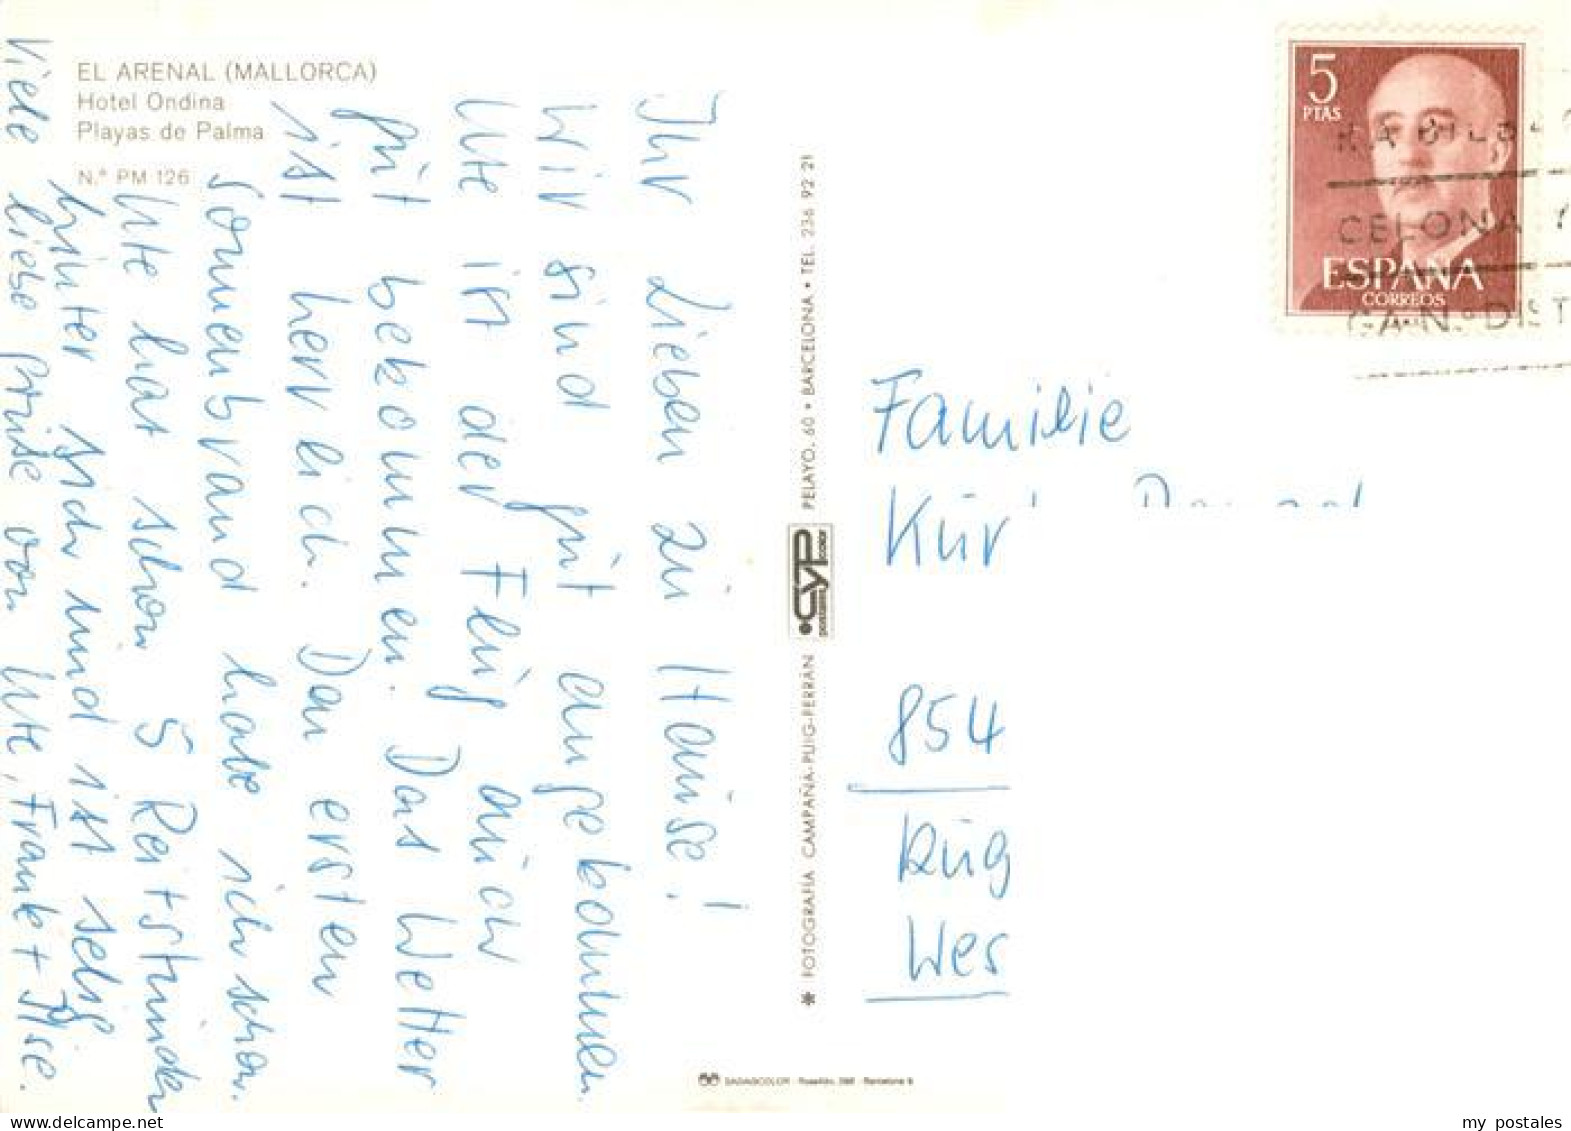 EL ARENAL (MALLORCA)
Hotel Ondina
Playas de Palma
N.º PM 126
Ihr Lieben zu Hause!
Wir sind gut angekommen
Ute ist der Flug auch
gut bekommen. Das Wetter
ist herrlich. Den ersten
Sonnenbrand habe ich schon.
Ute hat schon 5 Reitstunden
hinter sich und ist selig
Viele liebe Grüße von Ute, Frank + Ilse.
* FOTOGRAFÍA CAMPAÑÁ-PUIG-FERRÁN
CYP
postales color
PELAYO, 60 • BARCELONA • TEL. 236 92 21
5
PTAS
ESPAÑA
CORREOS
CELONA Y
CAN. DIST
Familie
Kur
854
Rüg
Wer
my postales